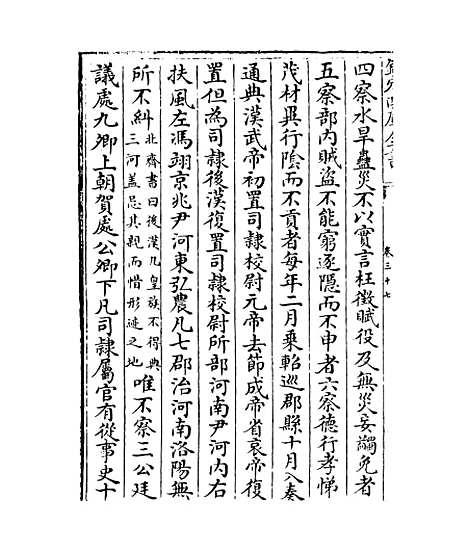 欽定四庫全書
卷三十七
四察水旱蟲災不以實言枉徵賦役及無災妄蠲免者
五察部内賊盜不能窮逐隱而不申者六察德行孝悌
茂材異行隂而不貢者每年二月乗軺巡郡縣十月入奏
通典漢武帝初置司𨽻校尉元帝去節成帝省哀帝復
置但為司𨽻後漢復置司𨽻校尉所部河南尹河内右
扶風左馮翊京兆尹河東弘農凡七郡治河南洛陽無
所不糾北齊書曰後漢九皇族不得典三河盖忌其親而惜形迹之地唯不察三公廷
議處九卿上朝賀處公卿下凡司𨽻屬官有從事史十